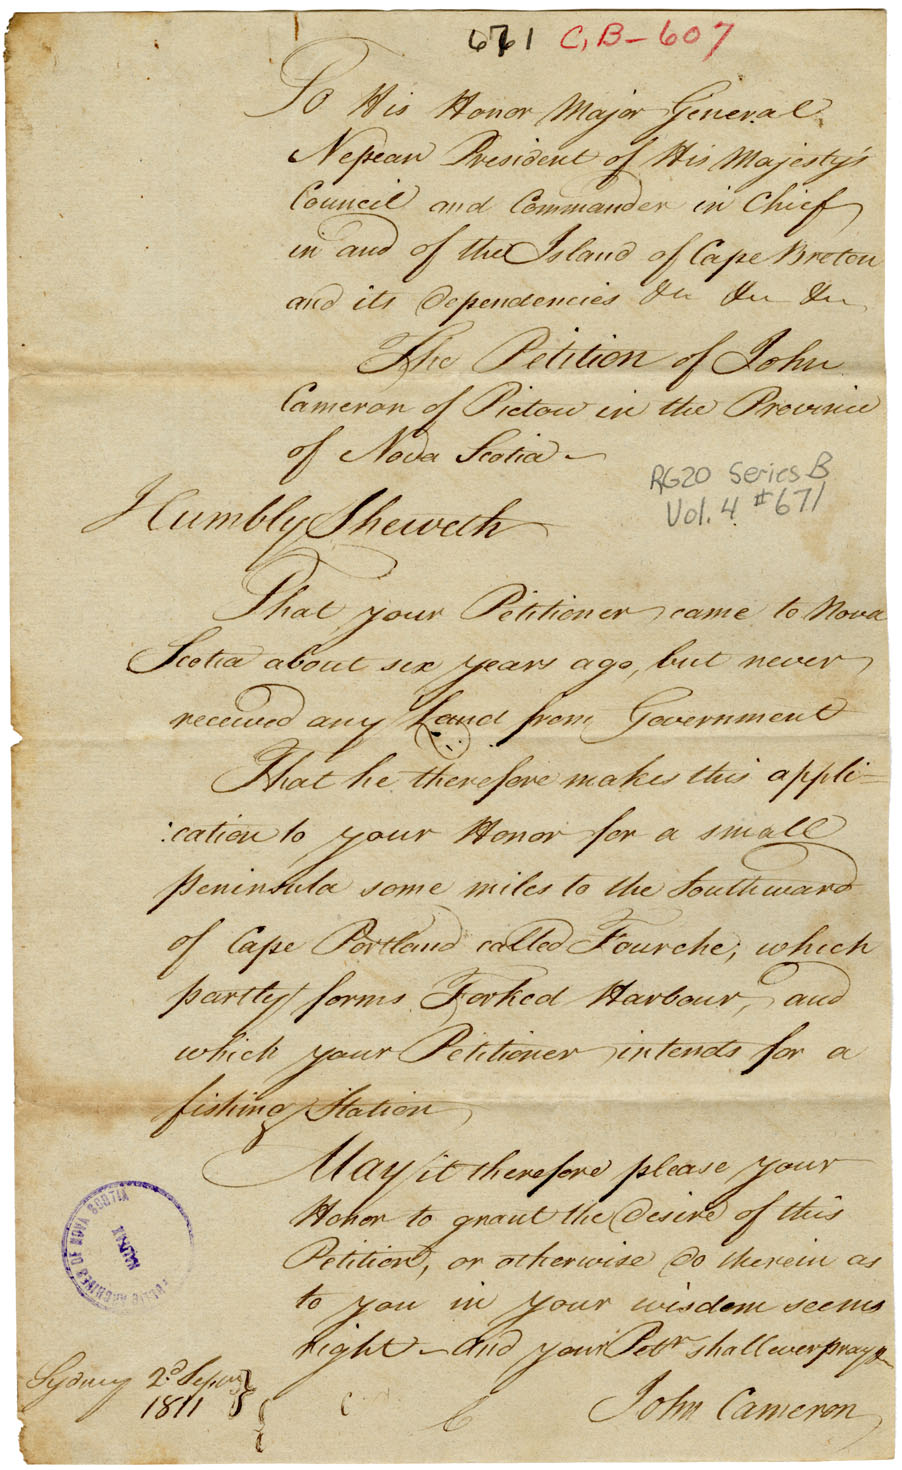 671 C,B-607
To His Honor Major General
Nepean President of His Majesty's
Council and Commander in Chief
in and of the Island of Cape Breton
and its dependencies &c &c &c
The Petition of John
Cameron of Pictou in the Province
of Nova Scotia
RG20 Series B
Vol. 4 #671
Humbly Sheweth
That your Petitioner came to Nova
Scotia about six years ago, but never
received any Land from Government
That he therefore makes this appli=
:cation to your Honor for a small
peninsula some miles to the Southward
of Cape Portland called Fourche; which
partly forms Forked Harbour, and
which your Petitioner intends for a
fishing Station
May it therefore please your
Honor to grant the desire of this
Petition, or otherwise do therein as
to you in your wisdom seems
right - and your Petr shall ever pray &c
PUBLIC ARCHIVES OF NOVA SCOTIA
HALIFAX
Sydney 2d Sepr
1811
John Cameron